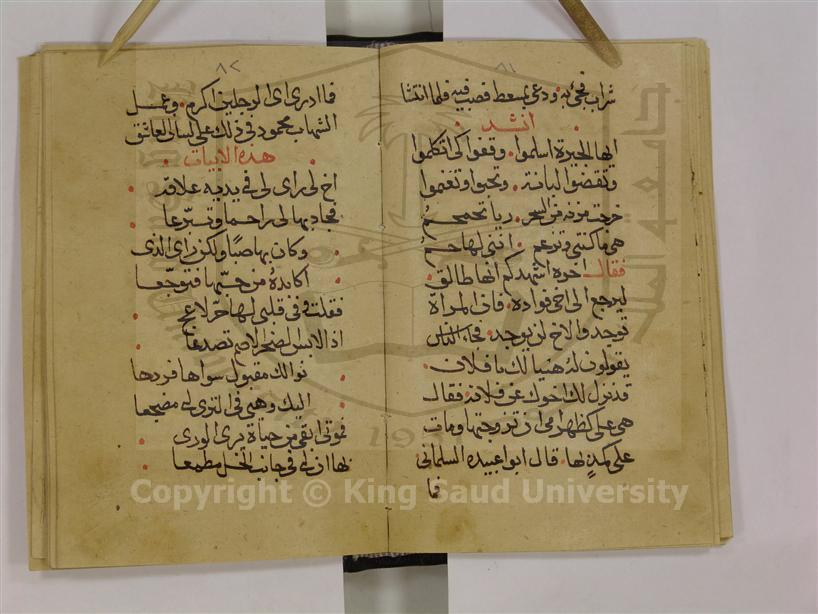 ٨١
شراب فجئ به ودعى بمسعط فصب فيه فلما انتشا
انشد
ايها الجيرة اسلموا وقفوا كى تكلموا
وتقضوا لبانة وتحيوا وتغنموا
خرجت مزنه من البحر ريا تجمجم
هى ما كنتى وتزعم اننى لها حم
فقال اخوه اشهدكم انها طالق
ليرجع الى اخى فواده فان المراة
توجد والاخ لن يوجد فجاء الناس
يقولون له هنيا لك يا فلان
قد نزل لك اخوك عن فلانة فقال
هى على كظهر امى ان تزوجتها ومات
على كمدٍ لها قال ابو عبيده السلمانى
فما
٨٢
فما ادرى اى الرجلين اكرم وعمل
الشهاب محمود فى ذلك على لسان العاشق
هذه الابيات
اخ لى راى لى فى يديه علاقة
فجاد بها لى راحما وتبرعا
وكان بها صبا ولكن راى الذى
اكابده من حبها فتوجعا
فقلت وفى قلبى لها حر لاعج
اذا لابس الصخر الاصم تصدعا
نوالك مقبول سواها فردها
اليك وهبنى فى الثرى لى مضجعا
فموتى ابقى من حياة يرى الورى
بها ان لى فى جانب الخل مطمعا
Copyright © King Saud University